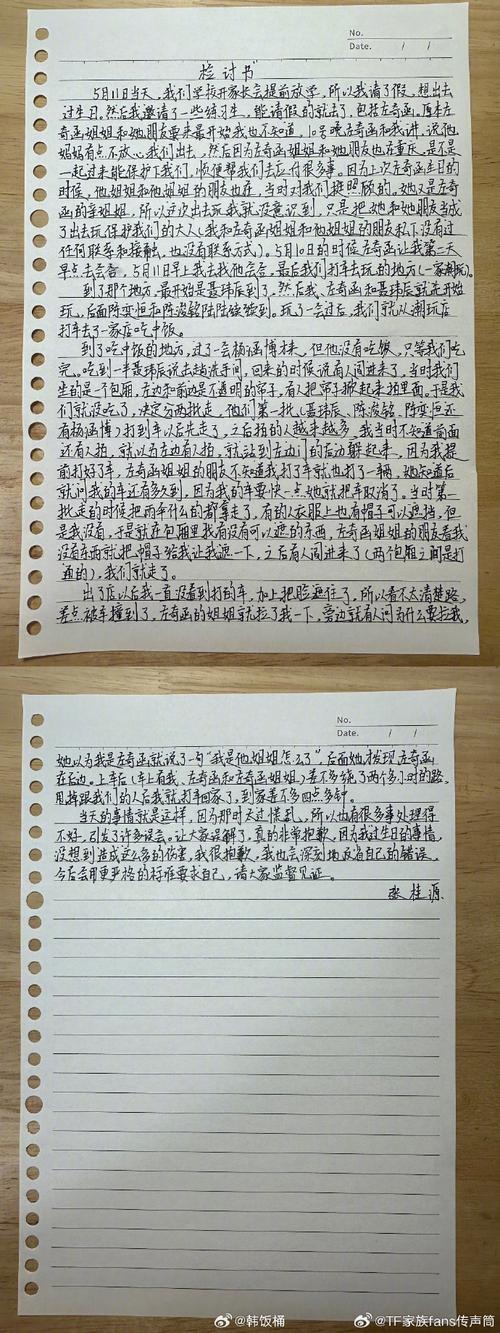 No.
Date. / /
检讨书
5月11日当天，我们学校开家长会提前放学，所以我请了假，想出去
过生日。然后我邀请了一些练习生，能请假的就去了，包括左奇函。原本左
奇函姐姐和她朋友要来最开始我也不知道，10号晚左奇函和我讲，说他
妈妈有点不放心我们出去，然后因为左奇函姐姐和她朋友也在重庆，是不是
一起过来能保护下我们，顺便帮我们去应付很多事，因为上次左奇函生日的
时候，他姐姐和他姐姐的朋友也在，当时对我们挺照顾的，她又是左奇
函的亲姐姐，所以这次出去玩我就没意识到，只是把她和她朋友当成
了出去玩保护我们的大人（我和左奇函姐姐和他姐姐的朋友私下没有过
任何联系和接触，也没有联系方式）。5月10日的时候左奇函让我第二天
早点去会合，5月11日早上我去找他会合，最后我们打车去玩的地方（一家潮玩）。
到了那个地方，最开始是聂玮辰到了，然后我、左奇函和聂玮辰就先开始
玩，后面陈奕恒和陈浚铭陆陆续续到。玩了一会过后，我们就从潮玩店
打车去了一家店吃中饭。
到了吃中饭的地方，过了一会杨涵博才来，但他没有吃饭，只等我们吃
完。吃到一半聂玮辰说出去趟洗手间，回来的时候说有人闯进来了，当时我们
坐的是个包厢，左边和前边是不透明的帘子，有人把帘子掀起来拍里面。于是我
们就没吃了，决定分两批走，他们第一批（聂玮辰、陈浚铭、陈奕恒还
有杨涵博）打到车以后先走了，之后拍的人越来越多，我当时不知道前面
还有人拍，就以为左边有人拍，就站到左边门的后边躲起来，因为我提
前打好了车，左奇函姐姐的朋友不知道我打了车就也打了一辆，她知道后
就问我的车还有多久到，因为我的车要快一点她就把车取消了，当时第一
批走的时候把雨伞什么的都拿走了，有的人衣服上也有帽子可以遮挡，但
是我没有，于是就在包厢里找有没有可以遮的东西，左奇函姐姐的朋友看我
没有东西就把帽子给我让我遮一下，之后有人闯进来了（两个包厢之间是打
通的），我们就走了。
出了店以后我一直没看到打的车，加上把脸遮住了，所以看不太清楚路，
差点被车撞到了，左奇函的姐姐就拉了我一下，旁边就有人问为什么要拉我，
No.
Date. / /
她以为我是左奇函就说了一句“我是他姐姐怎么了”，后面她才发现左奇函
在后边。上车后（车上有我、左奇函和左奇函姐姐）差不多绕了两个多小时的路，
甩掉跟我们的人后我就打车回家了，到家差不多四点多钟。
当天的事情就是这样，因为那时太慌乱，所以也有很多事处理得
不好，引发了许多误会。让大家误解了，真的非常抱歉，因为我过生日的事情，
没想到造成这么多的伤害，我很抱歉，我也会深刻地反省自己的错误，
今后会用更严格的标准要求自己，请大家监督见证。
张桂源
@韩饭桶
@TF家族fans传声筒